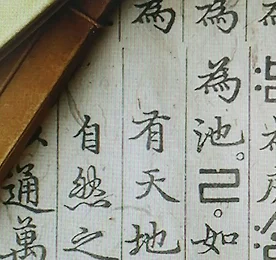 為為池。己。如
為有天地
自然之
通萬